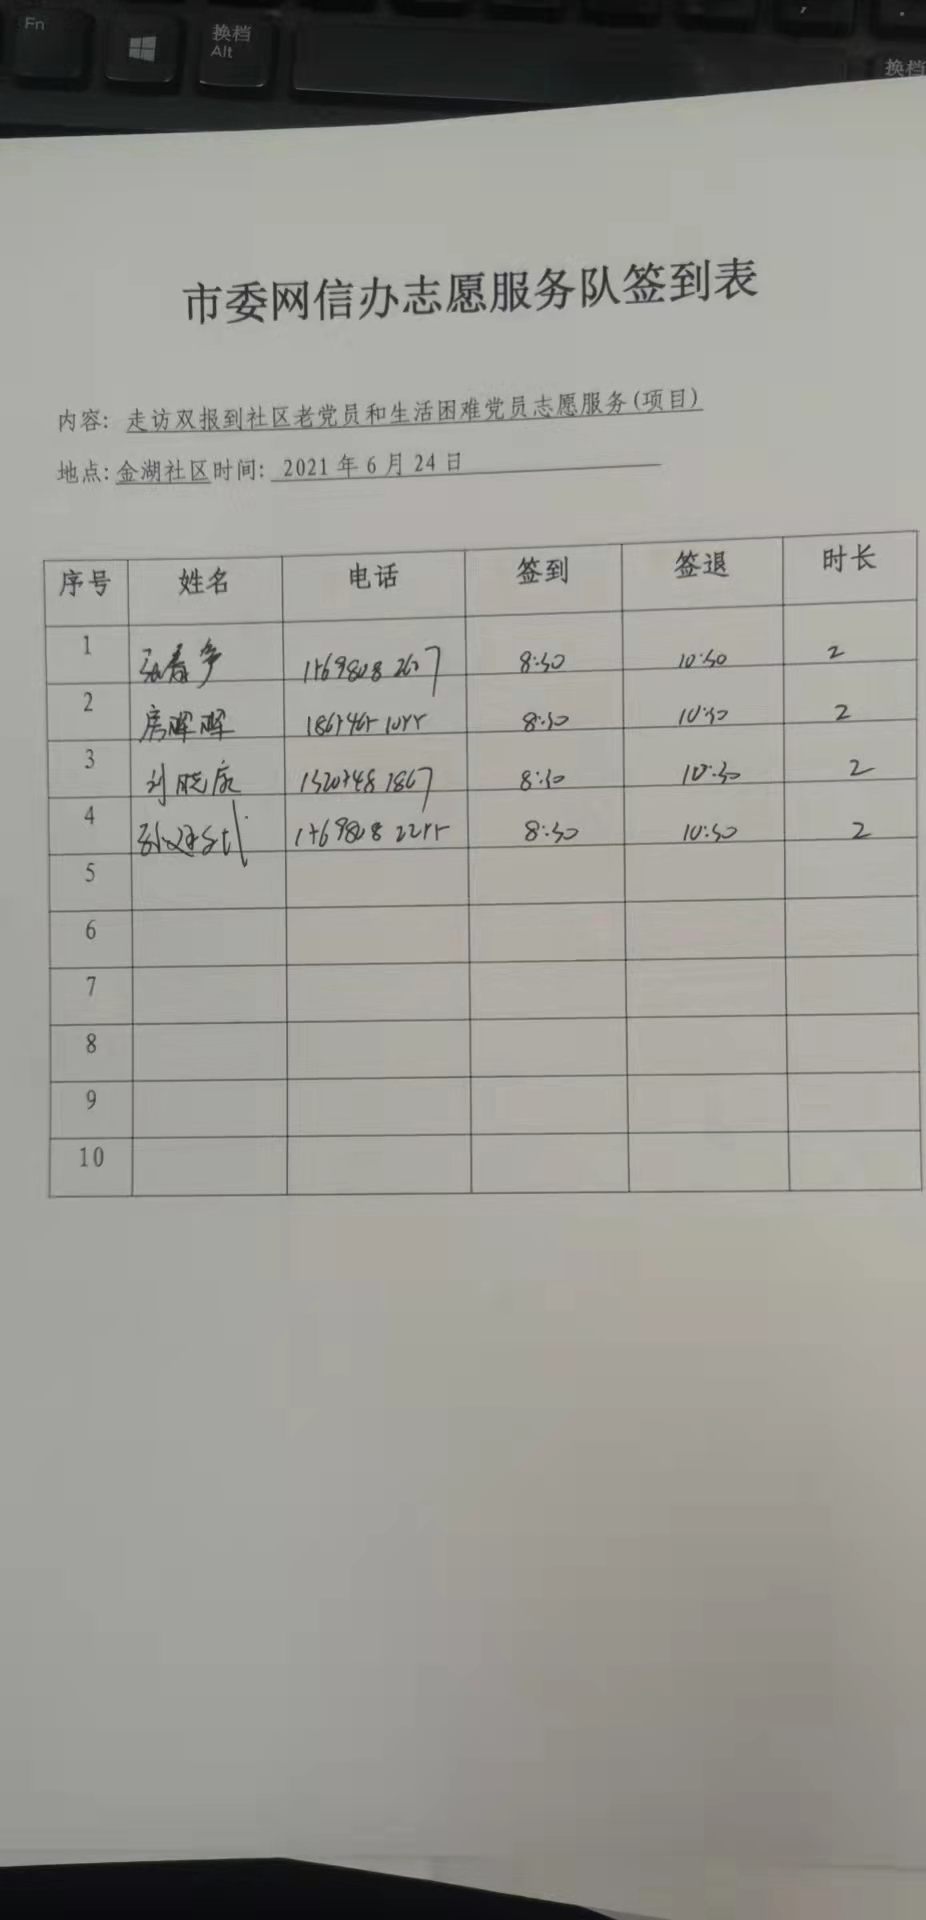 Fn
换档
Alt
换档
市委网信办志愿服务队签到表
内容: 走访双报到社区老党员和生活困难党员志愿服务(项目)
地点: 金湖社区 时间: 2021 年 6 月 24 日
序号 姓名 电话 签到 签退 时长
1 8:30 10:30 2
2 房晖晖 8:30 10:30 2
3 刘晓康 8:30 10:30 2
4 8:30 10:30 2
5
6
7
8
9
10